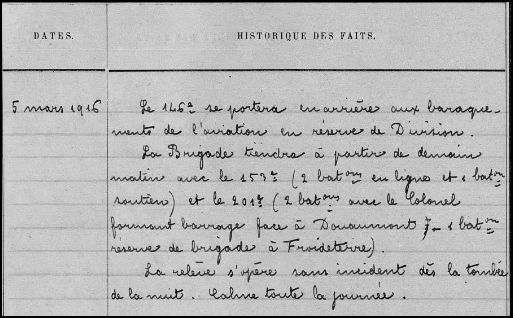 DATES.
HISTORIQUE DES FAITS.
5 mars 1916
Le 146e se portera en arrière aux baraque-
ments de l'aviation en réserve de Division.
La Brigade tiendra à partir de demain
matin avec le 153e (2 batons en ligne et 1 baton
soutien) et le 201e (2 batons avec le Colonel
formant barrage face à Douaumont - 1 baton
réserve de brigade à Froideterre).
La relève s'opère sans incident dès la tombée
de la nuit. Calme toute la journée.